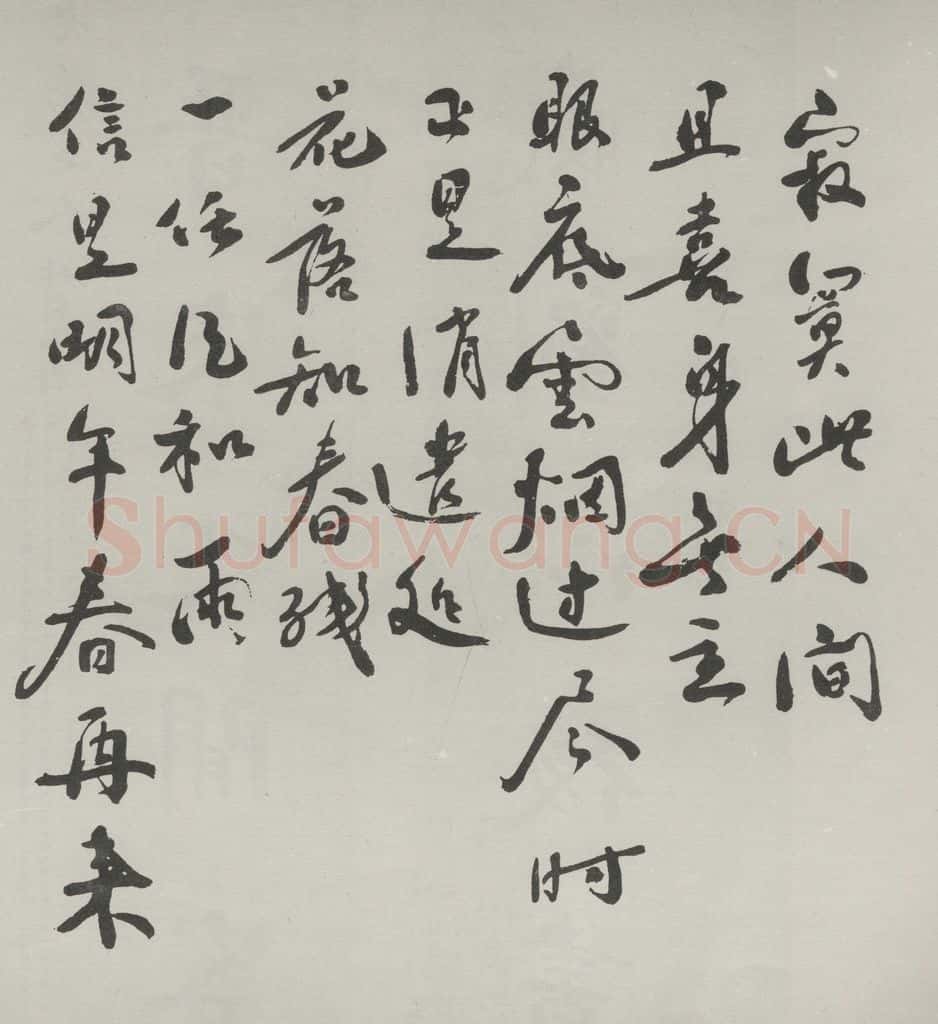 寂寞此人间
且喜身無主
眼底雲烟过尽时
正是消遥处
花落知春残
一任风和雨
信是明年春再来
Shufawang.CN